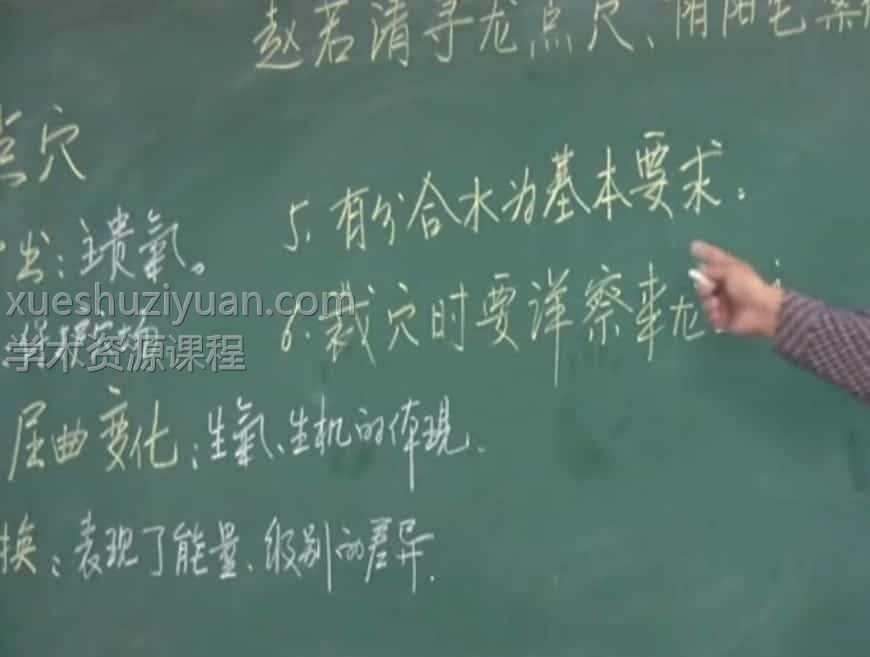 赵若清寻龙点穴、阴阳宅
点穴
出:主贵氣。
5、有分合水为基本要求。
xueshuziyuan.com
学术资源课程
6.裁穴时要详察来龙
屈曲变化:生氣、生机的体現.
换:表现了能量、级别的差异.